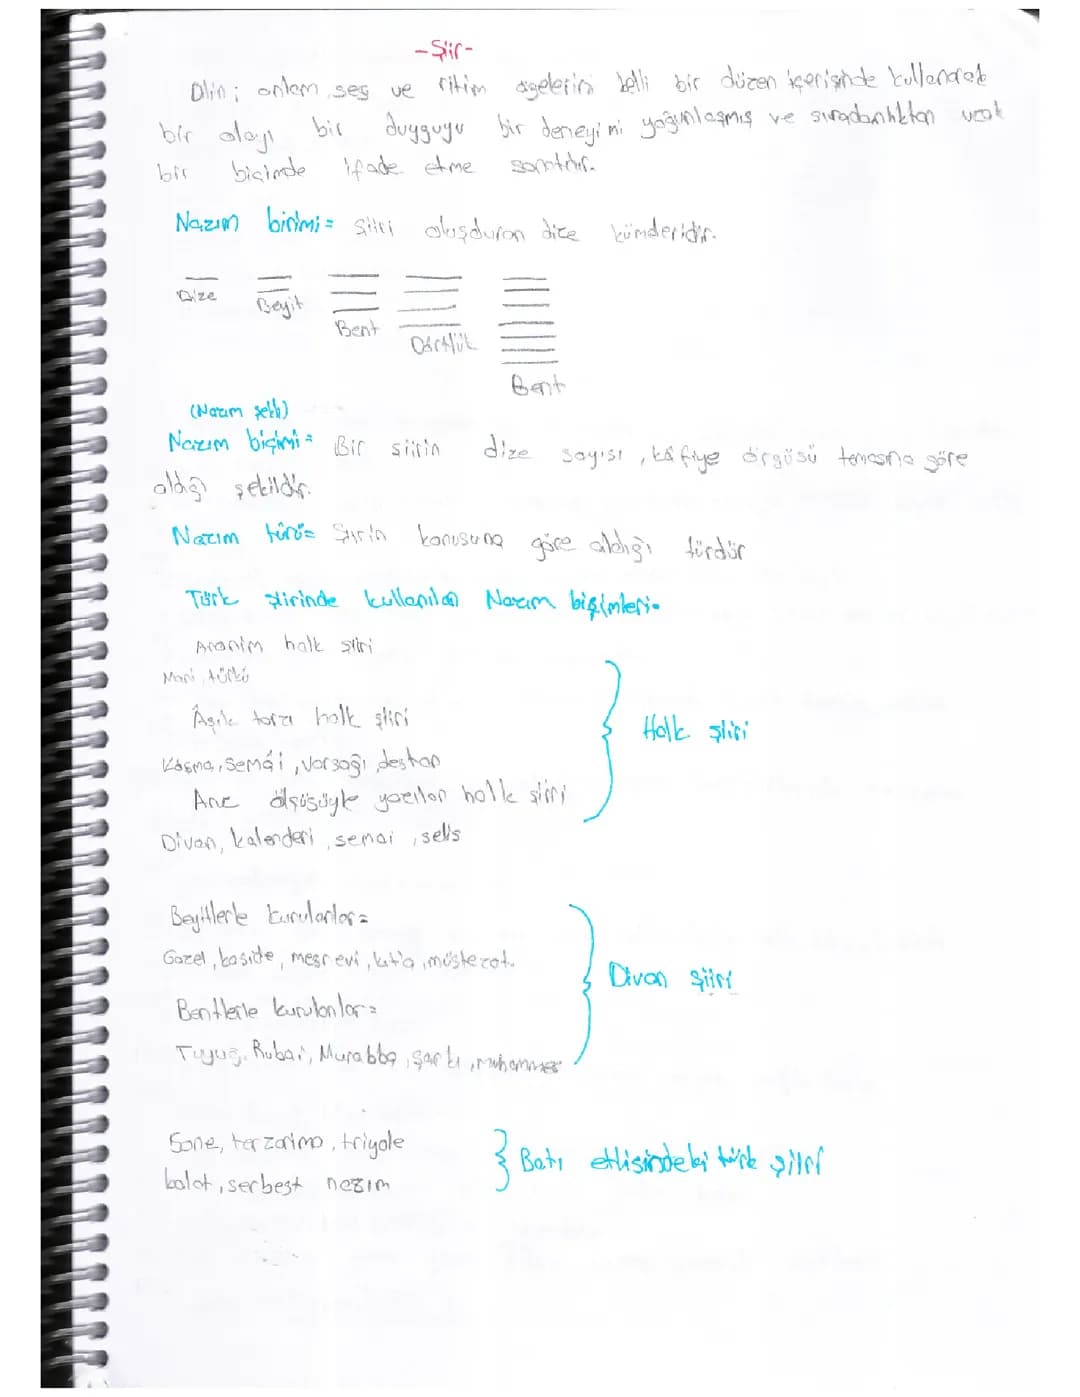 -Şiir-
Dilin; anlam, ses ve ritim ögelerini belli bir düzen içerisinde kullanarak
bir olayı bir duyguyu bir deneyimi yoğunlaşmış ve sıradanlıktan uzak
bir biçimde ifade etme sanatıdır.
Nazım birimi= şiiri oluşduran dize kümeleridir.
Dize
Beyit
Bent
Dörtlük
Bent
(Nazım şekli)
Nazım biçimi= Bir şiirin dize sayısı, kâfiye örgüsü temasına göre
aldığı şekildir.
Nazım türü= Şiirin konusuna göre aldığı türdür
Türk şiirinde kullanılan Nazım biçimleri-
Anonim halk şiiri
Mani, türkü
Âşık tarzı halk şiiri
Koşma, Semâi, Varsağı, destan
Halk şiiri
Aruz ölçüsüyle yazılan halk şiiri
Divan, kalenderi, semai, selis
Beyitlerle kurulanlar=
Gazel, kaside, mesnevi, kıt'a, müstezat.
Divan şiiri
Bentlerle kurulanlar=
Tuyuğ, Rubai, Murabba, şarkı, muhammes
Sone, terzarima, triyole
Batı etkisindeki türk şiiri
balat, serbest nazım